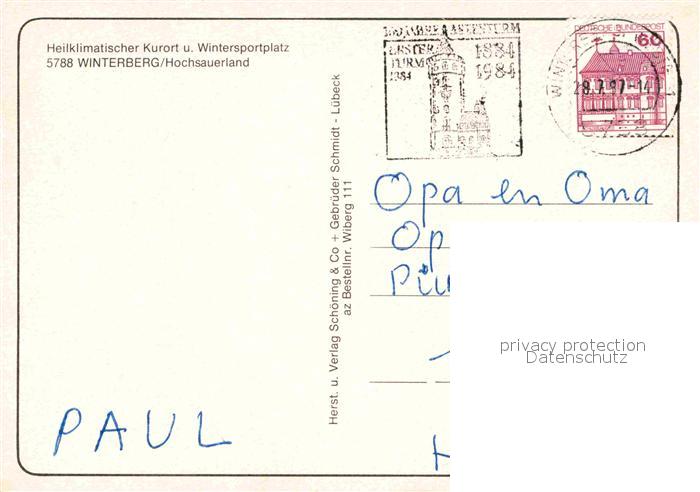 Heilklimatischer Kurort u. Wintersportplatz
5788 WINTERBERG/Hochsauerland
100 JAHRE ASTENTURM
ERSTER
TURM
1884
1884
1984
DEUTSCHE BUNDESPOST
60
Herst. u. Verlag Schöning & Co + Gebrüder Schmidt - Lübeck
az Bestellnr. Wiberg 111
Opa en Oma
Op
PAUL
privacy protection
Datenschutz